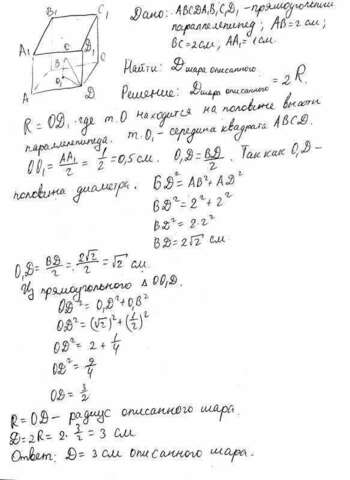 B₁ C₁
A₁ D₁
O
B C
O₁
A D
Дано: ABCDA₁B₁C₁D₁ - прямоугольный
параллелепипед; AB=2см;
BC=2см, AA₁=1см.
Найти: D шара описанного
Решение: D шара описанного = 2R.
R = OD₁ где т.О находится на половине высоты
параллелепипеда. т.О₁ - середина квадрата ABCD.
OO₁ = AA₁/2 = 1/2 = 0,5см. O₁D = BD/2. Так как O₁D -
половина диаметра. BD² = AB² + AD²
BD² = 2² + 2²
BD² = 2·2²
BD = 2√2 см.
O₁D = BD/2 = 2√2/2 = √2 см.
Из прямоугольного Δ OO₁D.
OD² = O₁D² + O₁B²
OD² = (√2)² + (1/2)²
OD² = 2 + 1/4
OD² = 9/4
OD = 3/2
R = OD - радиус описанного шара.
D = 2R = 2 · 3/2 = 3 см
Ответ: D = 3 см описанного шара.